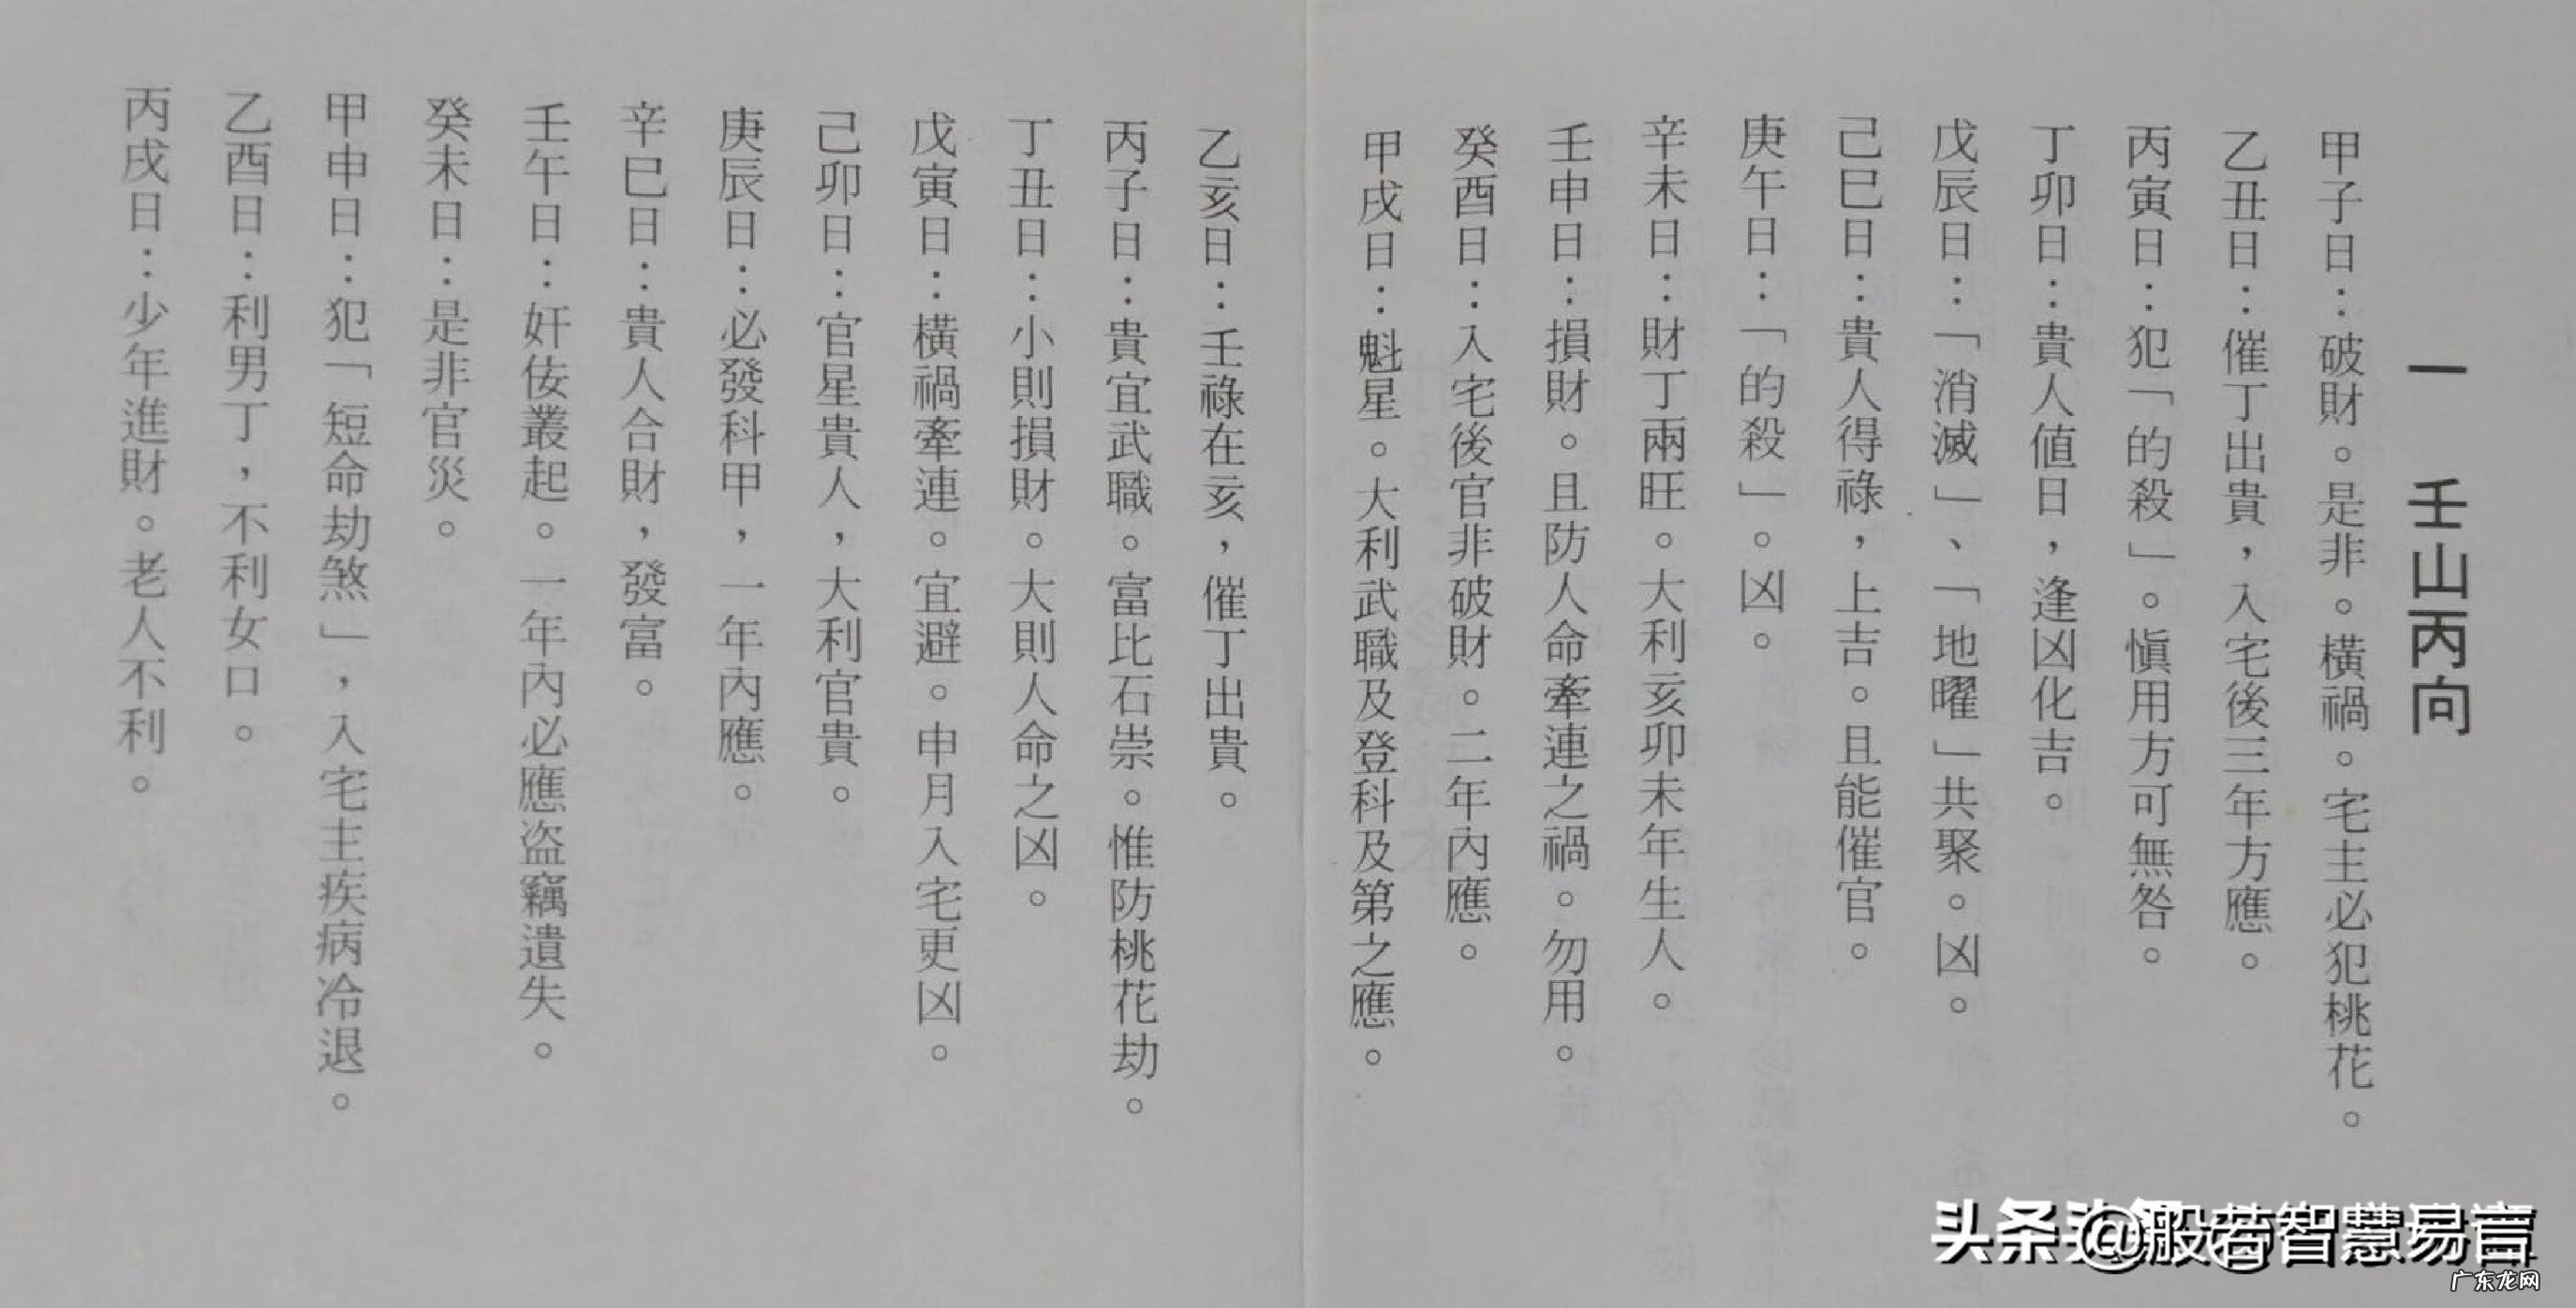 一 壬山丙向
甲子日：破財。是非。橫禍。宅主必犯桃花。
乙丑日：催丁出貴，入宅後三年方應。
丙寅日：犯「的殺」。慎用方可無咎。
丁卯日：貴人值日，逢凶化吉。
戊辰日：「消滅」、「地曜」共聚。凶。
己巳日：貴人得祿，上吉。且能催官。
庚午日：「的殺」。凶。
辛未日：財丁兩旺。大利亥卯未年生人。
壬申日：損財。且防人命牽連之禍。勿用。
癸酉日：入宅後官非破財。二年內應。
甲戌日：魁星。大利武職及登科及第之應。
乙亥日：壬祿在亥，催丁出貴。
丙子日：貴宜武職。富比石崇。惟防桃花劫。
丁丑日：小則損財。大則人命之凶。
戊寅日：橫禍牽連。宜避。申月入宅更凶。
己卯日：官星貴人，大利官貴。
庚辰日：必發科甲，一年內應。
辛巳日：貴人合財，發富。
壬午日：奸佞叢起。一年內必應盜竊遺失。
癸未日：是非官災。
甲申日：犯「短命劫煞」，入宅主疾病冷退。
乙酉日：利男丁，不利女口。
丙戌日：少年進財。老人不利。
头条 @般若智慧易言
广东龙网